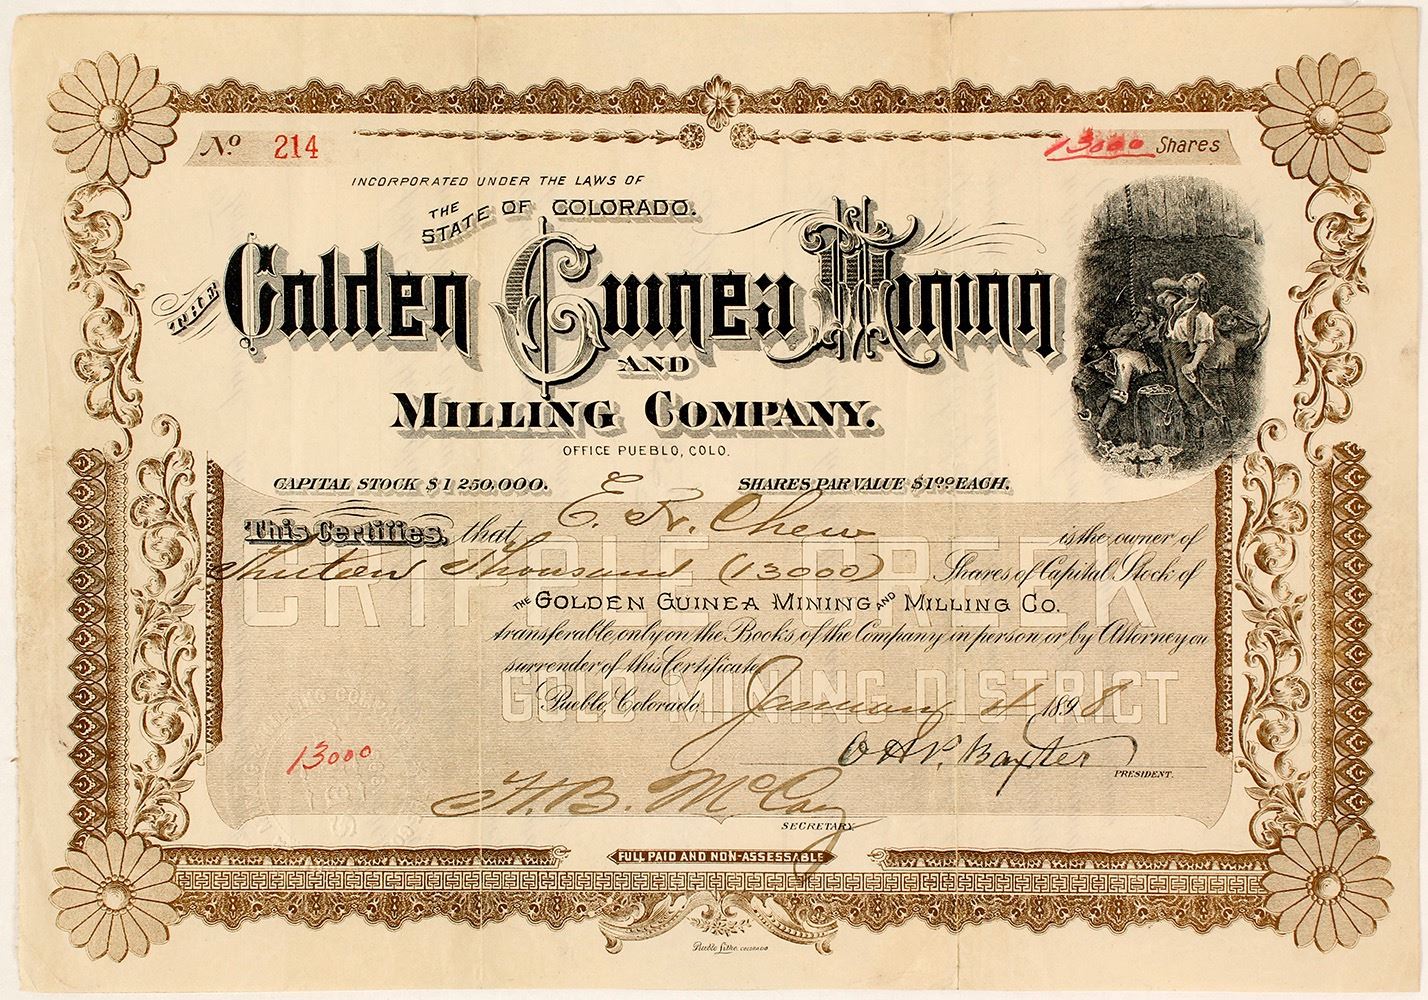 No 214
13000 Shares
INCORPORATED UNDER THE LAWS OF
THE STATE OF COLORADO.
THE Golden Guinea Mining
AND
MILLING COMPANY.
OFFICE PUEBLO, COLO.
CAPITAL STOCK $1 250,000. SHARES PAR VALUE $1 00 EACH.
This Certifies, that E. R. Chew is the owner of
Thirteen Thousand (13000) Shares of Capital Stock of
CRIPPLE CREEK
THE GOLDEN GUINEA MINING AND MILLING CO.
transferable only on the Books of the Company in person or by Attorney on
surrender of this Certificate
GOLD MINING DISTRICT
Pueblo, Colorado, January 4 1898
13000
O H P. Baxter
PRESIDENT.
H. B. McCoy
SECRETARY.
FULL PAID AND NON-ASSESSABLE
Pueblo Litho. COLORADO